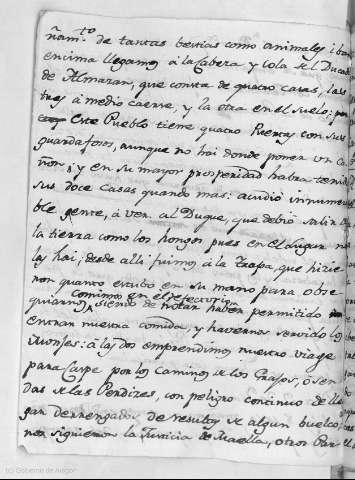 ñam.to de tantas bestias como animales iban
encima llegamos á la Cabeza y Cola del Ducado
de Almazan, que consta de quatro casas, las
tres á medio caerse, y la otra en el suelo: por
Este Pueblo tiene quatro Puertas con sus
guardafosos, aunque no hai donde poner un Ca-
ñon, y en su mayor prosperidad habrá tenido
sus doce Casas quando mas: acudió innumera-
ble gente, á ver al Duque, que debió salir de
la tierra como los hongos pues en el Lugar no
la hai; desde alli fuimos á la Trapa, que hizie
ron quanto estubo en su mano para obse
quiarnos comimos en el refectorio,
siendo de notar haber permitido
entrar nuestra comida, y havernos servido los
Monjes: á las dos emprendimos nuestro viage
para Caspe por los Caminos de los Grajos, ó sen
das de las Perdizes, con peligro continuo de lle
gar derrengados de resultas de algun buelco,
nos siguieron la Justicia de Maella, otros Par
(c) Gobierno de Aragón